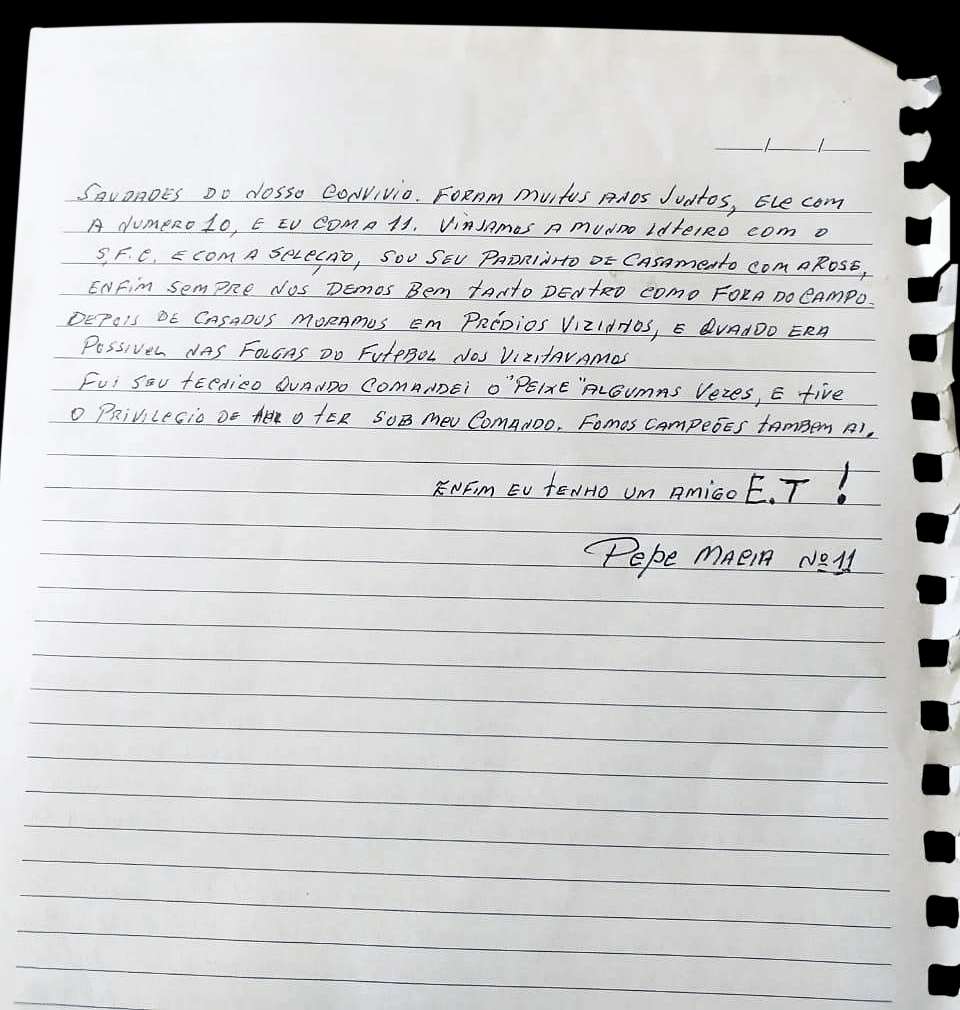 SAUDADES DO NOSSO CONVIVIO. FORAM MUITUS ANOS JUNTOS, ELE COM
A NUMERO 10, E EU COM A 11. VIAJAMOS A MUNDO INTEIRO COM O
S.F.C. E COM A SELEÇÃO, SOU SEU PADRINHO DE CASAMENTO COM A ROSE,
ENFIM SEMPRE NOS DEMOS BEM TANTO DENTRO COMO FORA DO CAMPO.
DEPOIS DE CASADUS MORAMUS EM PRÉDIOS VIZINHOS, E QUANDO ERA
POSSIVEL NAS FOLGAS DO FUTEBOL NOS VIZITAVAMOS
FUI SEU TECNICO QUANDO COMANDEI O "PEIXE" ALGUMAS VEZES, E TIVE
O PRIVILEGIO DE O TER SOB MEU COMANDO. FOMOS CAMPEÕES TAMBEM AI.
ENFIM EU TENHO UM AMIGO E.T !
PEPE MACIA Nº 11